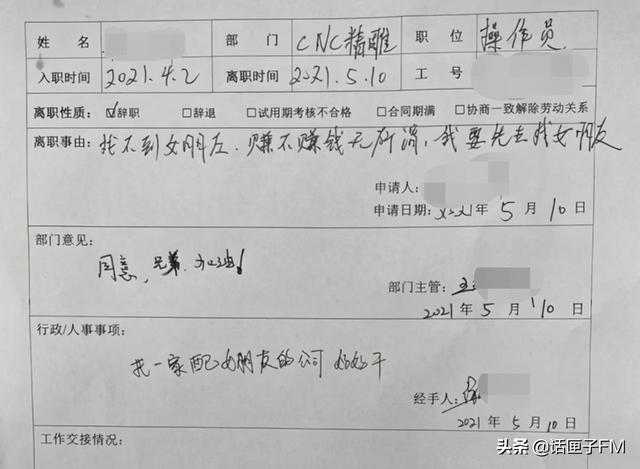 姓 名 部 门 CNC精雕 职 位 操作员
入职时间 2021.4.2 离职时间 2021.5.10 工 号
离职性质: ☑辞职 □辞退 □试用期考核不合格 □合同期满 □协商一致解除劳动关系
离职事由: 找不到女朋友. 赚不赚钱无所谓, 我要先去找女朋友
申请人:
申请日期: 2021年 5 月 10 日
部门意见:
同意, 兄弟. 加油!
部门主管:
2021年 5 月 10 日
行政/人事事项:
找一家配女朋友的公司 好好干
经手人:
2021年 5 月 10 日
工作交接情况:
头条 @话匣子FM